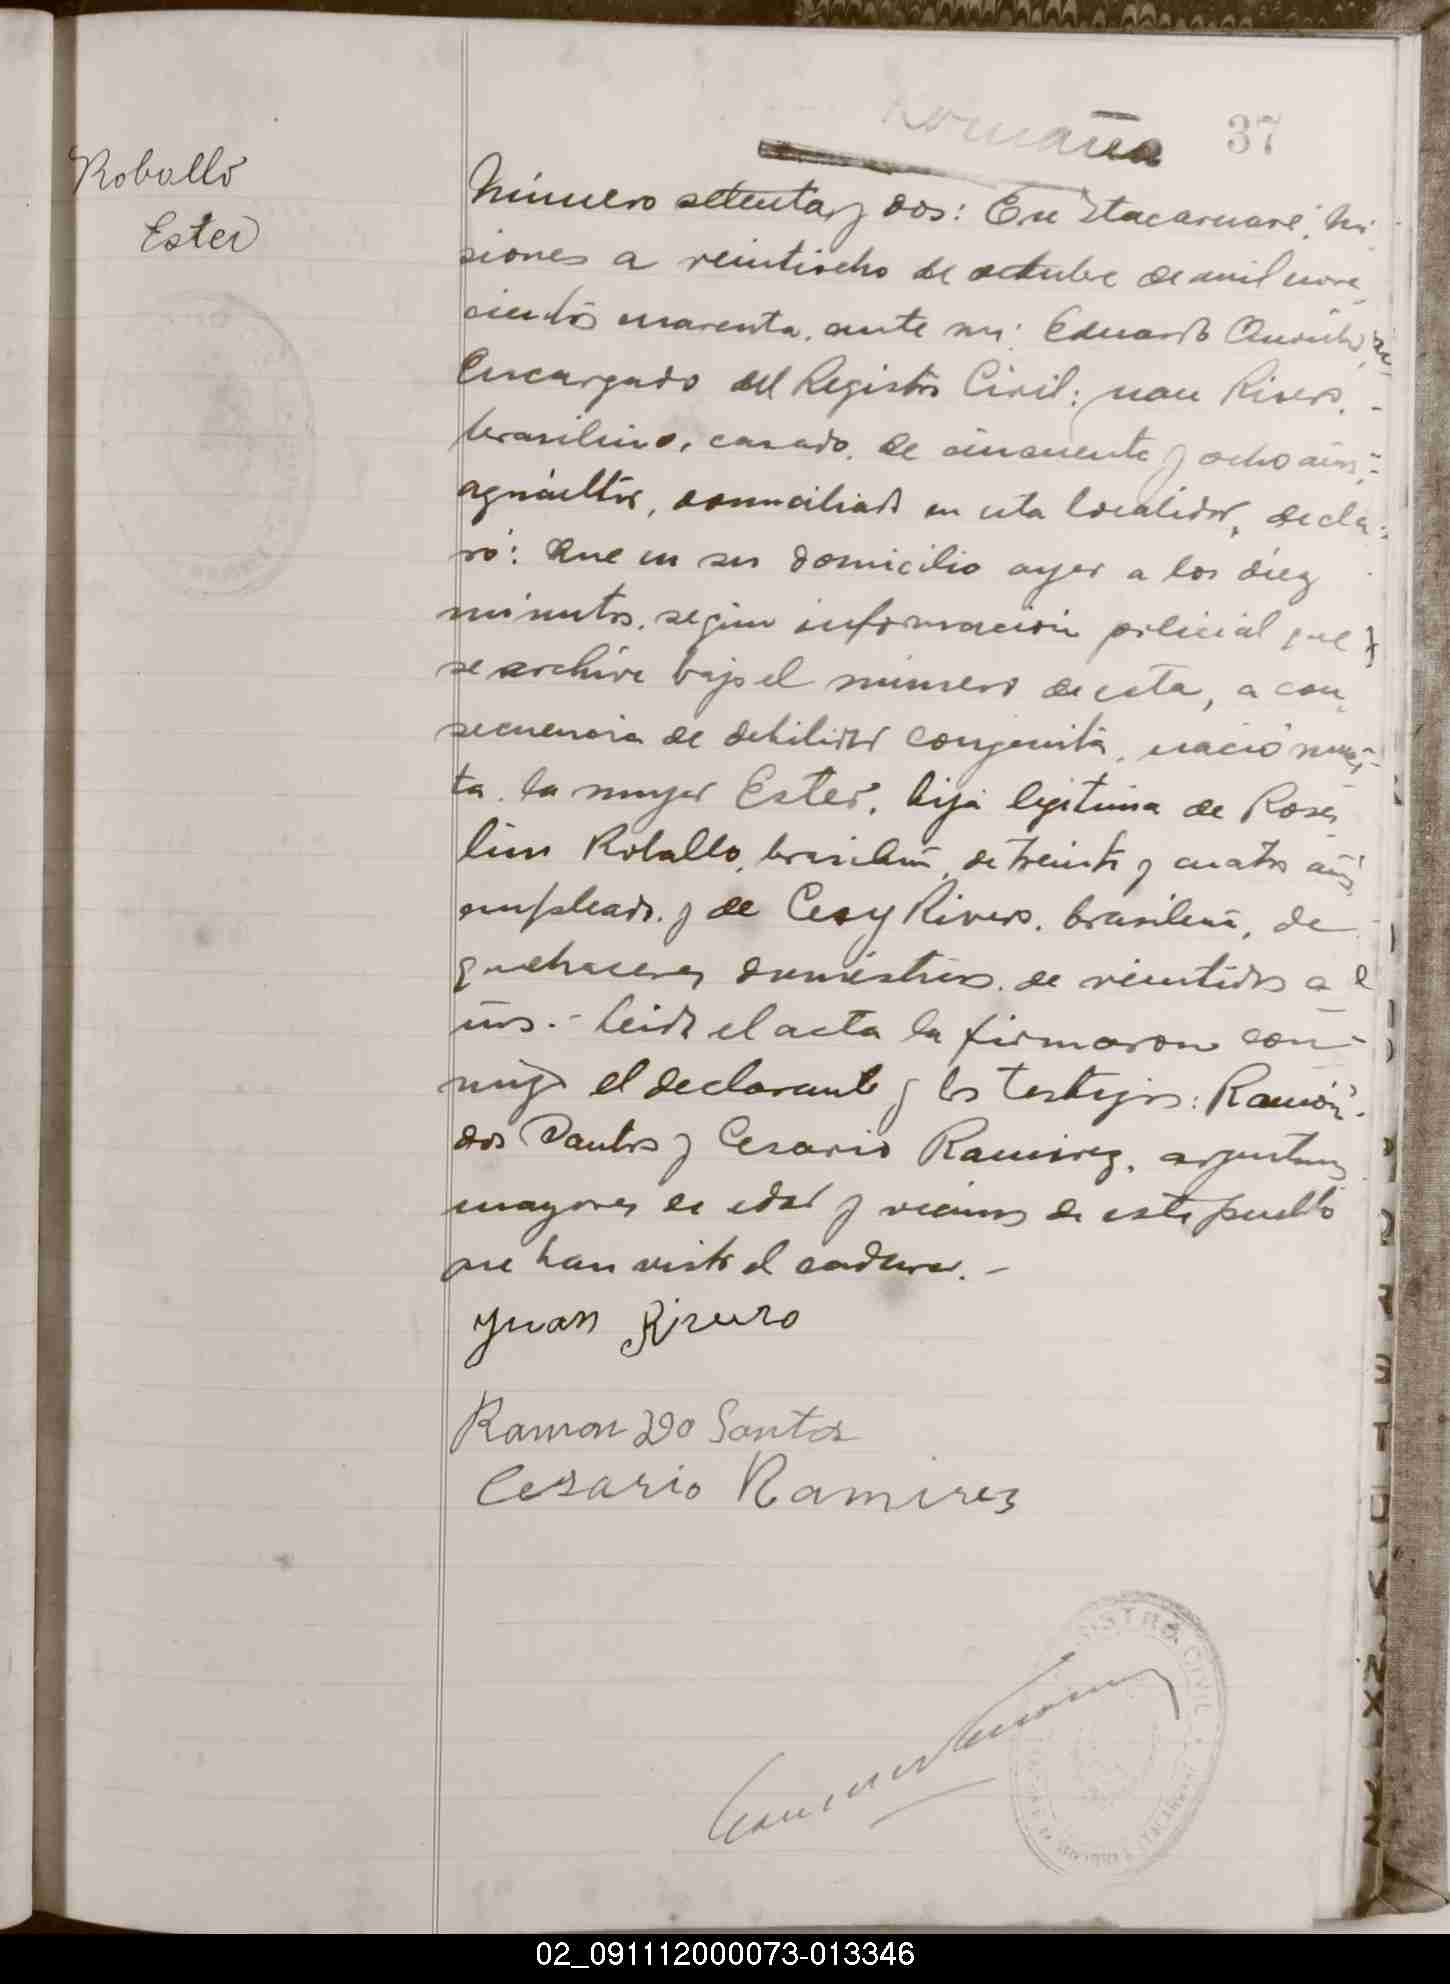 37
Roballo
Ester
Número setenta y dos: En Itacaruaré, Mi-
siones a veintiocho de octubre de mil nove-
cientos cuarenta, ante mí: Eduardo
Encargado del Registro Civil: Juan Rivero,
brasileño, casado, de cincuenta y ocho años,
agricultor, domiciliado en esta localidad, decla-
ró: Que en su domicilio ayer a los diez
minutos, según información policial que
se archiva bajo el número de esta, a con-
secuencia de debilidad congenita, nació muer-
ta, la mujer Ester, hija legitima de Rose-
lino Roballo, brasileño, de treinta y cuatro años,
empleado, y de Cesy Rivero, brasileña, de
quehaceres domésticos, de veintidos a-
ños.- Leida el acta la firmaron con-
migo el declarante y los testigos: Ramón
dos Santos y Cesario Ramirez, argentinos
mayores de edad y vecinos de este pueblo
que han visto el cadaver.-
Juan Rivero
Ramon Do Santos
Cesario Ramirez
REGISTRO CIVIL
02_091112000073-013346